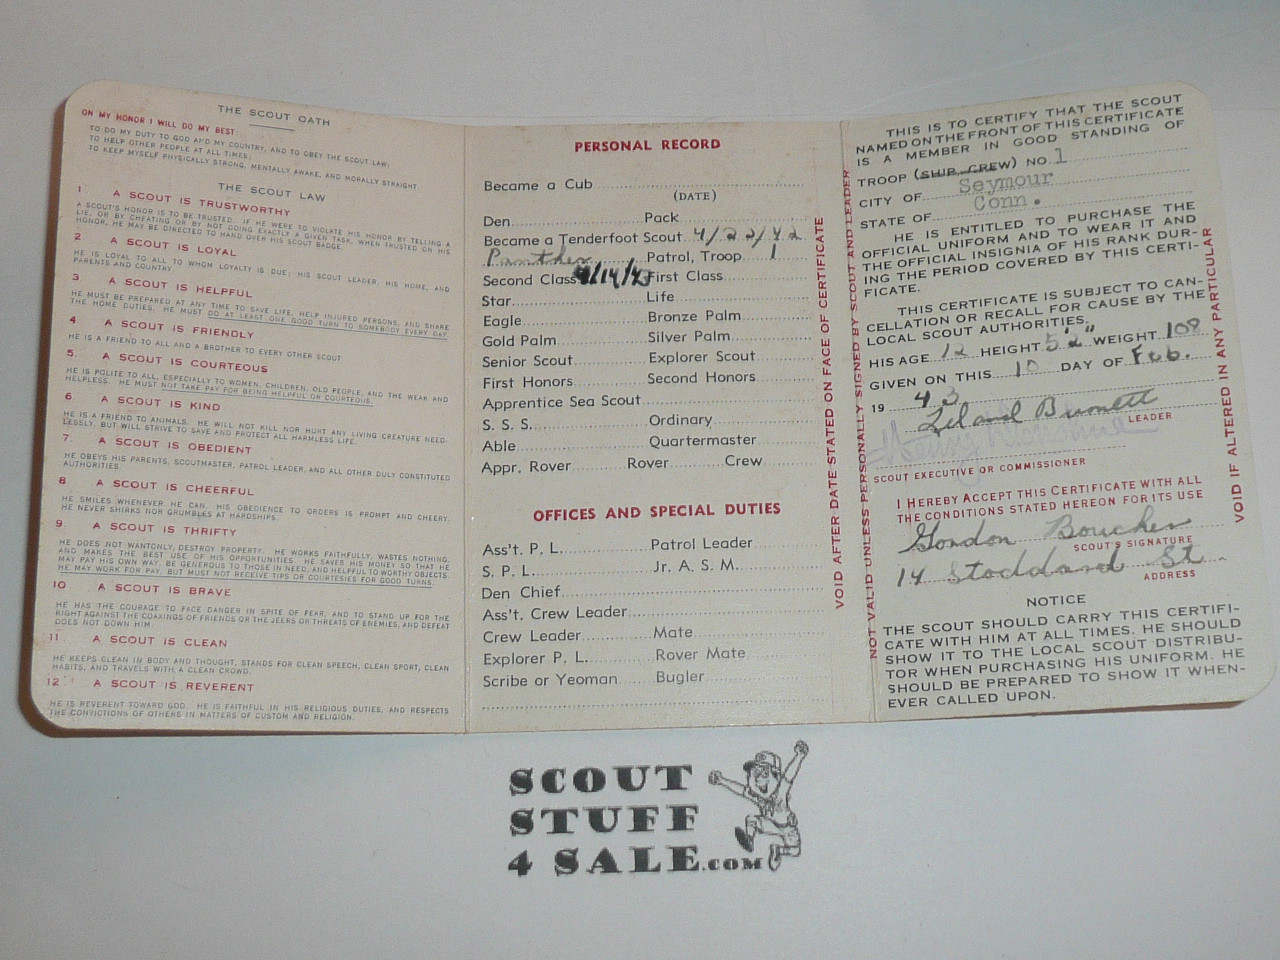 THE SCOUT OATH
ON MY HONOR I WILL DO MY BEST:
TO DO MY DUTY TO GOD AND MY COUNTRY, AND TO OBEY THE SCOUT LAW;
TO HELP OTHER PEOPLE AT ALL TIMES;
TO KEEP MYSELF PHYSICALLY STRONG, MENTALLY AWAKE, AND MORALLY STRAIGHT.
THE SCOUT LAW
1 A SCOUT IS TRUSTWORTHY
A SCOUT'S HONOR IS TO BE TRUSTED. IF HE WERE TO VIOLATE HIS HONOR BY TELLING A
LIE, OR BY CHEATING OR BY NOT DOING EXACTLY A GIVEN TASK, WHEN TRUSTED ON HIS
HONOR, HE MAY BE DIRECTED TO HAND OVER HIS SCOUT BADGE.
2 A SCOUT IS LOYAL
HE IS LOYAL TO ALL TO WHOM LOYALTY IS DUE; HIS SCOUT LEADER, HIS HOME, AND
PARENTS AND COUNTRY
3 A SCOUT IS HELPFUL
HE MUST BE PREPARED AT ANY TIME TO SAVE LIFE, HELP INJURED PERSONS, AND SHARE
THE HOME DUTIES. HE MUST DO AT LEAST ONE GOOD TURN TO SOMEBODY EVERY DAY.
4 A SCOUT IS FRIENDLY
HE IS A FRIEND TO ALL AND A BROTHER TO EVERY OTHER SCOUT
5. A SCOUT IS COURTEOUS
HE IS POLITE TO ALL, ESPECIALLY TO WOMEN, CHILDREN, OLD PEOPLE, AND THE WEAK AND
HELPLESS. HE MUST NOT TAKE PAY FOR BEING HELPFUL OR COURTEOUS.
6 A SCOUT IS KIND
HE IS A FRIEND TO ANIMALS. HE WILL NOT KILL NOR HURT ANY LIVING CREATURE NEED-
LESSLY, BUT WILL STRIVE TO SAVE AND PROTECT ALL HARMLESS LIFE.
7. A SCOUT IS OBEDIENT
HE OBEYS HIS PARENTS, SCOUTMASTER, PATROL LEADER, AND ALL OTHER DULY CONSTITUTED
AUTHORITIES.
8 A SCOUT IS CHEERFUL
HE SMILES WHENEVER HE CAN. HIS OBEDIENCE TO ORDERS IS PROMPT AND CHEERY.
HE NEVER SHIRKS NOR GRUMBLES AT HARDSHIPS.
9. A SCOUT IS THRIFTY
HE DOES NOT WANTONLY DESTROY PROPERTY. HE WORKS FAITHFULLY, WASTES NOTHING
AND MAKES THE BEST USE OF HIS OPPORTUNITIES. HE SAVES HIS MONEY SO THAT HE
MAY PAY HIS OWN WAY, BE GENEROUS TO THOSE IN NEED, AND HELPFUL TO WORTHY OBJECTS.
HE MAY WORK FOR PAY, BUT MUST NOT RECEIVE TIPS OR COURTESIES FOR GOOD TURNS.
10 A SCOUT IS BRAVE
HE HAS THE COURAGE TO FACE DANGER IN SPITE OF FEAR, AND TO STAND UP FOR THE
RIGHT AGAINST THE COAXINGS OF FRIENDS OR THE JEERS OR THREATS OF ENEMIES, AND DEFEAT
DOES NOT DOWN HIM.
11. A SCOUT IS CLEAN
HE KEEPS CLEAN IN BODY AND THOUGHT, STANDS FOR CLEAN SPEECH, CLEAN SPORT, CLEAN
HABITS, AND TRAVELS WITH A CLEAN CROWD.
12 A SCOUT IS REVERENT
HE IS REVERENT TOWARD GOD. HE IS FAITHFUL IN HIS RELIGIOUS DUTIES, AND RESPECTS
THE CONVICTIONS OF OTHERS IN MATTERS OF CUSTOM AND RELIGION.
PERSONAL RECORD
Became a Cub
(DATE)
Den Pack
Became a Tenderfoot Scout 4/22/42
Panther Patrol, Troop 1
Second Class /14/43 First Class
Star Life
Eagle Bronze Palm
Gold Palm Silver Palm
Senior Scout Explorer Scout
First Honors Second Honors
Apprentice Sea Scout
S. S. S. Ordinary
Able Quartermaster
Appr. Rover Rover Crew
OFFICES AND SPECIAL DUTIES
Ass't. P. L. Patrol Leader
S. P. L. Jr. A. S. M.
Den Chief
Ass't. Crew Leader
Crew Leader Mate
Explorer P. L. Rover Mate
Scribe or Yeoman Bugler
VOID AFTER DATE STATED ON FACE OF CERTIFICATE
NOT VALID UNLESS PERSONALLY SIGNED BY SCOUT AND LEADER
THIS IS TO CERTIFY THAT THE SCOUT
NAMED ON THE FRONT OF THIS CERTIFICATE
IS A MEMBER IN GOOD STANDING OF
TROOP (SHIP, CREW) NO. 1
CITY OF Seymour
STATE OF Conn.
HE IS ENTITLED TO PURCHASE THE
OFFICIAL UNIFORM AND TO WEAR IT AND
THE OFFICIAL INSIGNIA OF HIS RANK DUR-
ING THE PERIOD COVERED BY THIS CERTI-
FICATE.
THIS CERTIFICATE IS SUBJECT TO CAN-
CELLATION OR RECALL FOR CAUSE BY THE
LOCAL SCOUT AUTHORITIES.
HIS AGE 12 HEIGHT 5'2" WEIGHT 108
GIVEN ON THIS 10 DAY OF Feb.
19 43
Leland Burnett
LEADER
SCOUT EXECUTIVE OR COMMISSIONER
I HEREBY ACCEPT THIS CERTIFICATE WITH ALL
THE CONDITIONS STATED HEREON FOR ITS USE
Gordon Boucher
SCOUT'S SIGNATURE
14 Stoddard St
ADDRESS
NOTICE
THE SCOUT SHOULD CARRY THIS CERTIFI-
CATE WITH HIM AT ALL TIMES. HE SHOULD
SHOW IT TO THE LOCAL SCOUT DISTRIBU-
TOR WHEN PURCHASING HIS UNIFORM. HE
SHOULD BE PREPARED TO SHOW IT WHEN-
EVER CALLED UPON.
VOID IF ALTERED IN ANY PARTICULAR
SCOUT
STUFF
4 SALE.COM